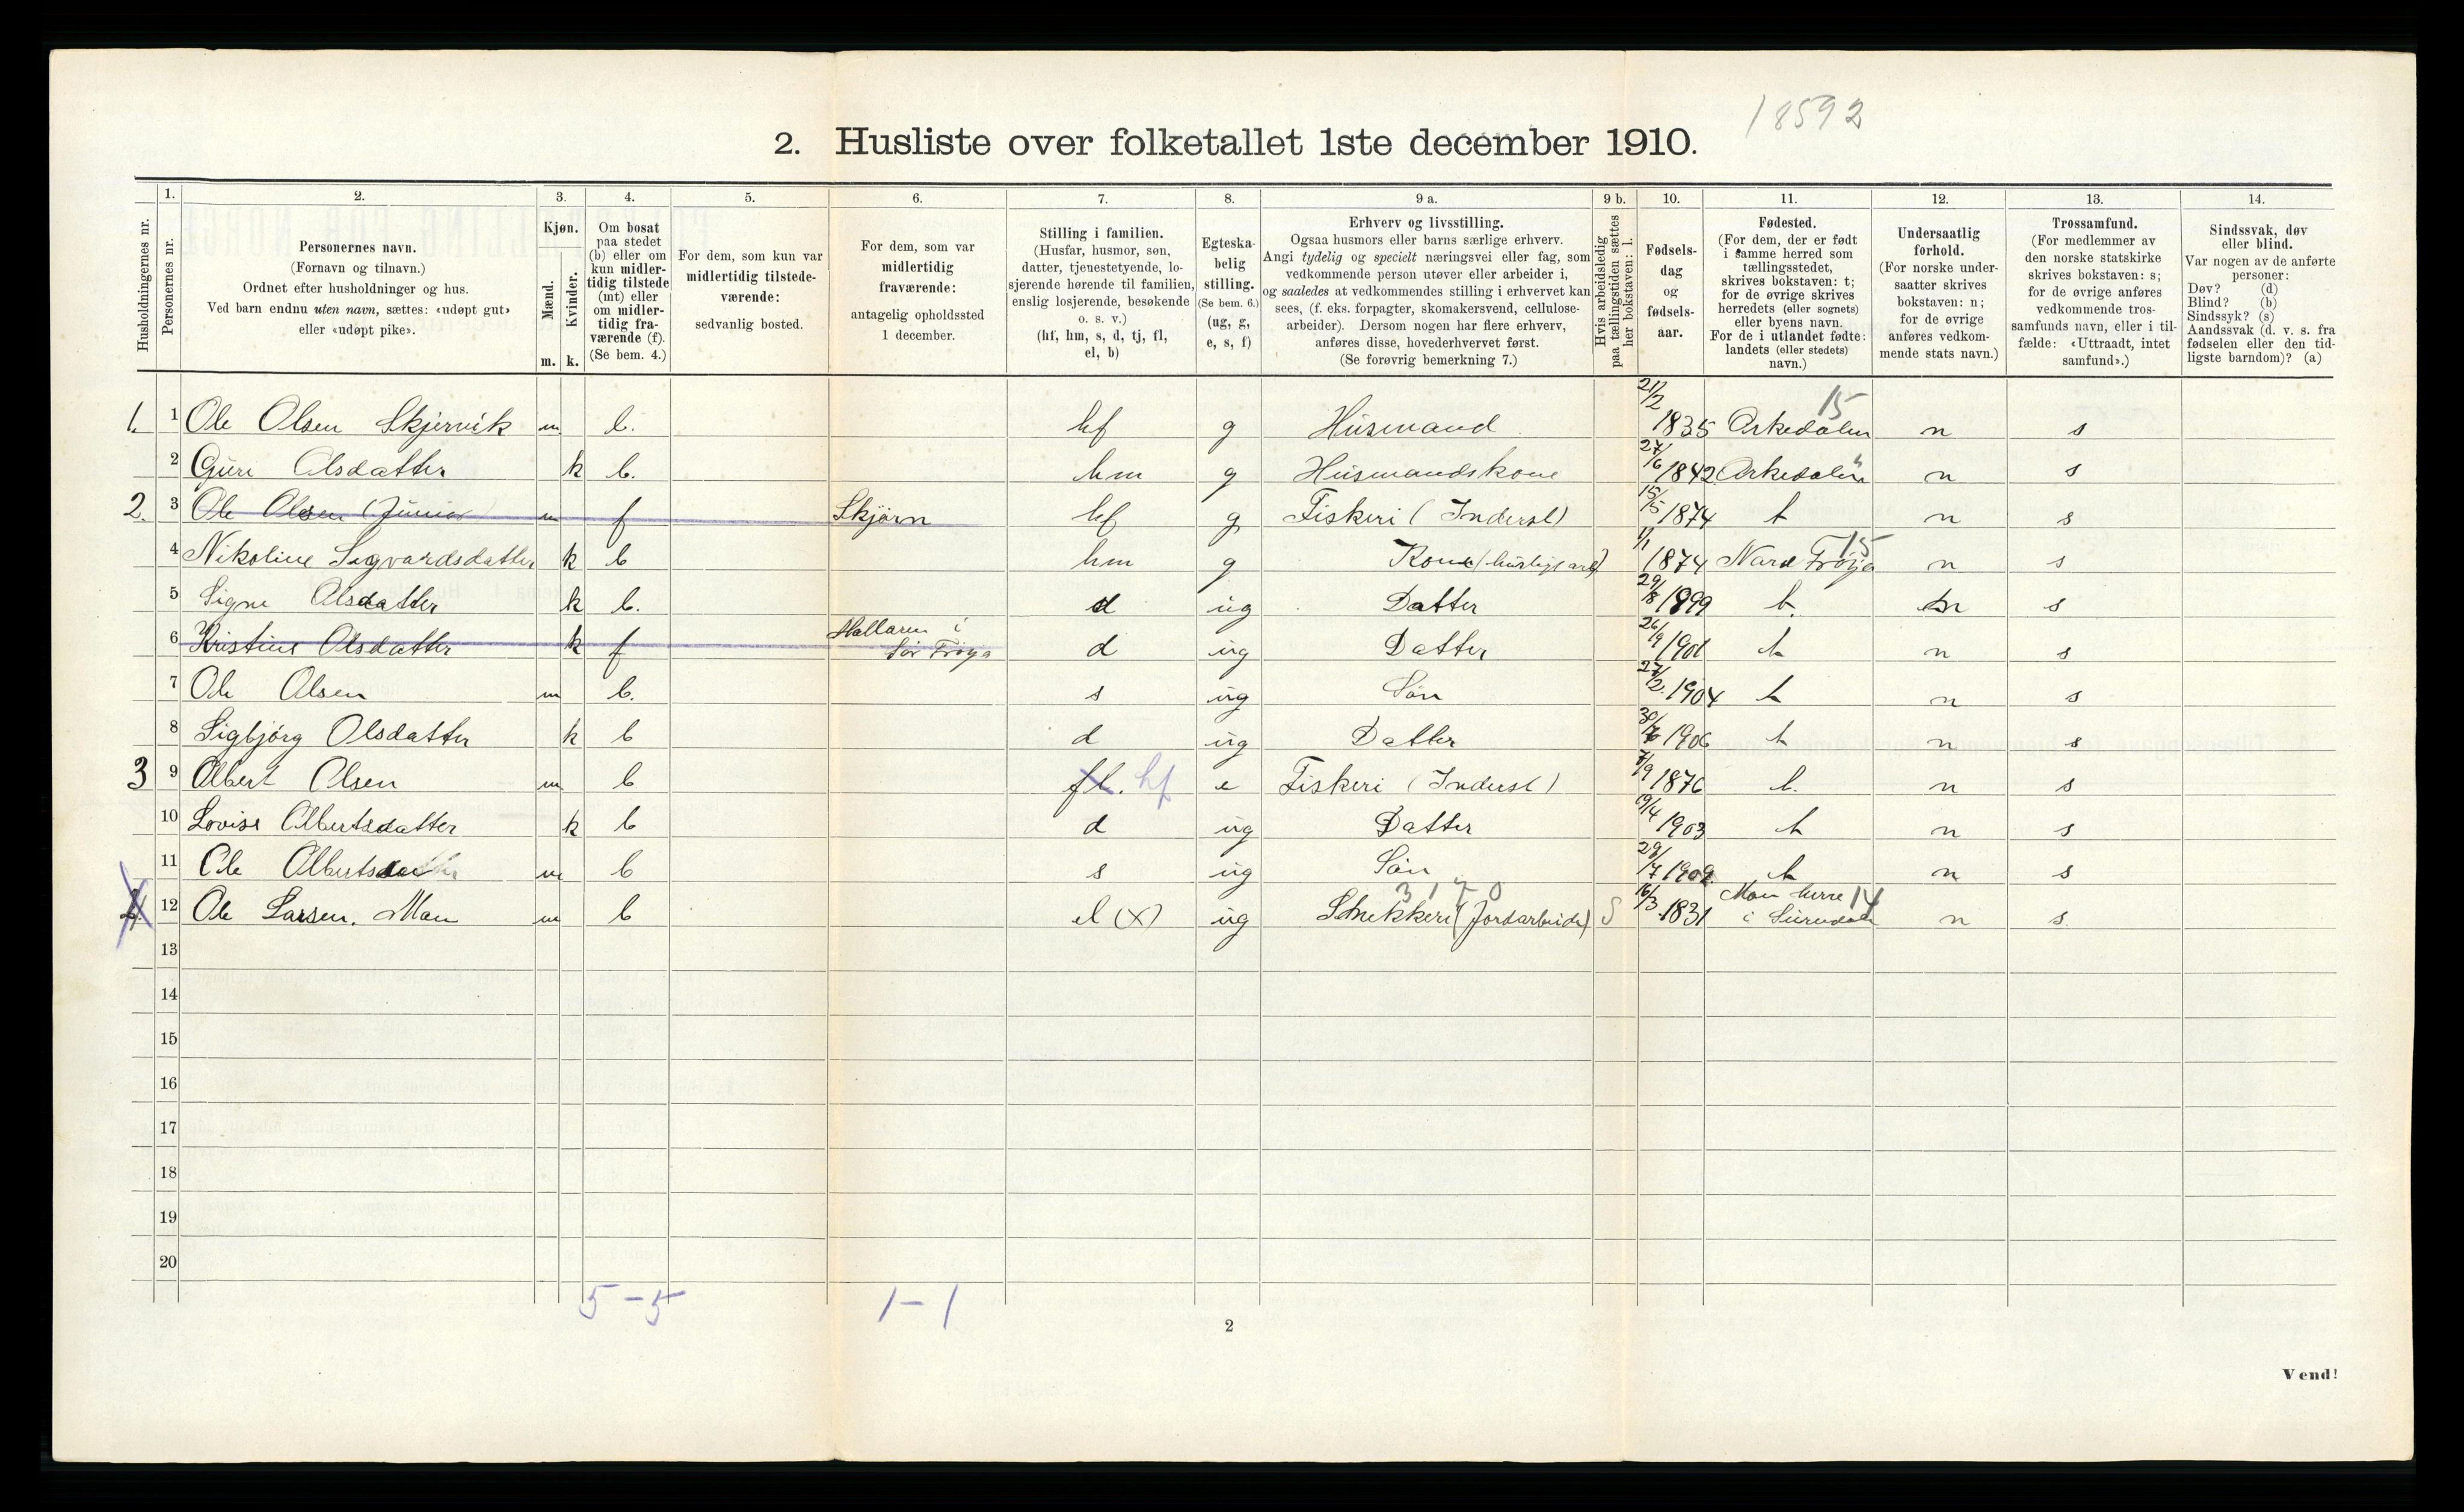 18592
2. Husliste over folketallet 1ste december 1910.
Husholdningernes nr.
1. Personernes nr.
2. Personernes navn.
(Fornavn og tilnavn.)
Ordnet efter husholdninger og hus.
Ved barn endnu uten navn, sættes: «udøpt gut»
eller «udøpt pike».
3. Kjøn.
Mænd. m.
Kvinder. k.
4. Om bosat
paa stedet
(b) eller om
kun midler-
tidig tilstede
(mt) eller
om midler-
tidig fra-
værende (f).
(Se bem. 4.)
5. For dem, som kun var
midlertidig tilstede-
værende:
sedvanlig bosted.
6. For dem, som var
midlertidig
fraværende:
antagelig opholdssted
1 december.
7. Stilling i familien.
(Husfar, husmor, søn,
datter, tjenestetyende, lo-
sjerende hørende til familien,
enslig losjerende, besøkende
o. s. v.)
(hf, hm, s, d, tj, fl,
el, b)
8. Egteska-
belig
stilling.
(Se bem. 6.)
(ug, g,
e, s, f)
9 a. Erhverv og livsstilling.
Ogsaa husmors eller barns særlige erhverv.
Angi tydelig og specielt næringsvei eller fag, som
vedkommende person utøver eller arbeider i,
og saaledes at vedkommendes stilling i erhvervet kan
sees, (f. eks. forpagter, skomakersvend, cellulose-
arbeider). Dersom nogen har flere erhverv,
anføres disse, hovederhvervet først.
(Se forøvrig bemerkning 7.)
9 b. Hvis arbeidsledig
paa tællingstiden sættes
her bokstaven: l.
10. Fødsels-
dag
og
fødsels-
aar.
11. Fødested.
(For dem, der er født
i samme herred som
tællingsstedet,
skrives bokstaven: t;
for de øvrige skrives
herredets (eller sognets)
eller byens navn.
For de i utlandet fødte:
landets (eller stedets)
navn.)
12. Undersaatlig
forhold.
(For norske under-
saatter skrives
bokstaven: n;
for de øvrige
anføres vedkom-
mende stats navn.)
13. Trossamfund.
(For medlemmer av
den norske statskirke
skrives bokstaven: s;
for de øvrige anføres
vedkommende tros-
samfunds navn, eller i til-
fælde: «Uttraadt, intet
samfund».)
14. Sindssvak, døv
eller blind.
Var nogen av de anførte
personer:
Døv? (d)
Blind? (b)
Sindssyk? (s)
Aandssvak (d. v. s. fra
fødselen eller den tid-
ligste barndom)? (a)
1. 1 Ole Olsen Skjervik m b. hf g Husmand 21/2 1835 Orkedalen 15 n s
2 Guri Olsdatter k b. hm g Husmandskone 27/6 1842 Orkedalen n s
2. 3 Ole Olsen (Junior) m f Skjørn hf g Fiskeri (Inderst) 15/5 1874 t n s
4 Nikoline Sigvardsdatter k b hm g Kone (huslig arb) 1/1 1874 Nord Frøya 15 n s
5 Signe Olsdatter k b. d ug Datter 29/8 1899 t. n s
6 Kristine Olsdatter k f Hallaren i Sør Frøya d ug Datter 26/9 1901 t n s
7 Ole Olsen m b. s ug Søn 27/2. 1904 t n s
8 Sigbjørg Olsdatter k b d ug Datter 30/6 1906 t n s
3 9 Albert Olsen m b fl. hf e Fiskeri (Inderst) 7/9 1876 t. n s
10 Lovise Albertsdatter k b d ug Datter 19/4 1903 t n s
11 Ole Alberts m b s ug Søn 29/7 1909 t n s
4. 12 Ole Larsen. Moen m b el (X) ug Snekkeri (Jordarbeide) 3170 S 16/3 1831 i Surendal 14 n s.
13
14
15
16
17
18
19
20
5 - 5
1 - 1
2
Vend!